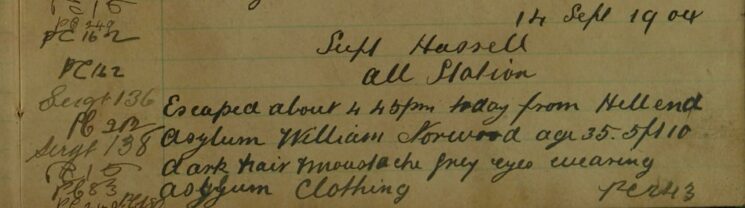 PC 15
PC 249
PC 162
14 Sept 1904
Supt Hassell
PC 162
all Station
Sergt 136
Escaped about 4 45pm today from Hellend
PC 212
Asylum William Norwood age 35. 5ft 10
Sergt 138
dark hair moustache grey eyes wearing
PC 15
PC 83
asylum Clothing
PC 243